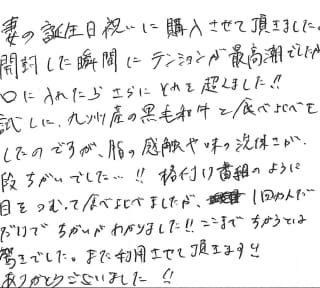 妻の誕生日祝いに購入させて頂きました。
開封した瞬間にテンションが最高潮でしたが
口に入れたらさらにそれを超えました!!
試しに、九州産の黒毛和牛と食べ比べを
したのですが、脂の感触や味の流体さが、
段ちがいでした…!! 格付け番組のように
目をつむって食べ比べましたが、1回かんだ
だけでちがいがわかりました!! ここまでちがうとは
驚きでした。また利用させて頂きます!!
ありがとうございました!!